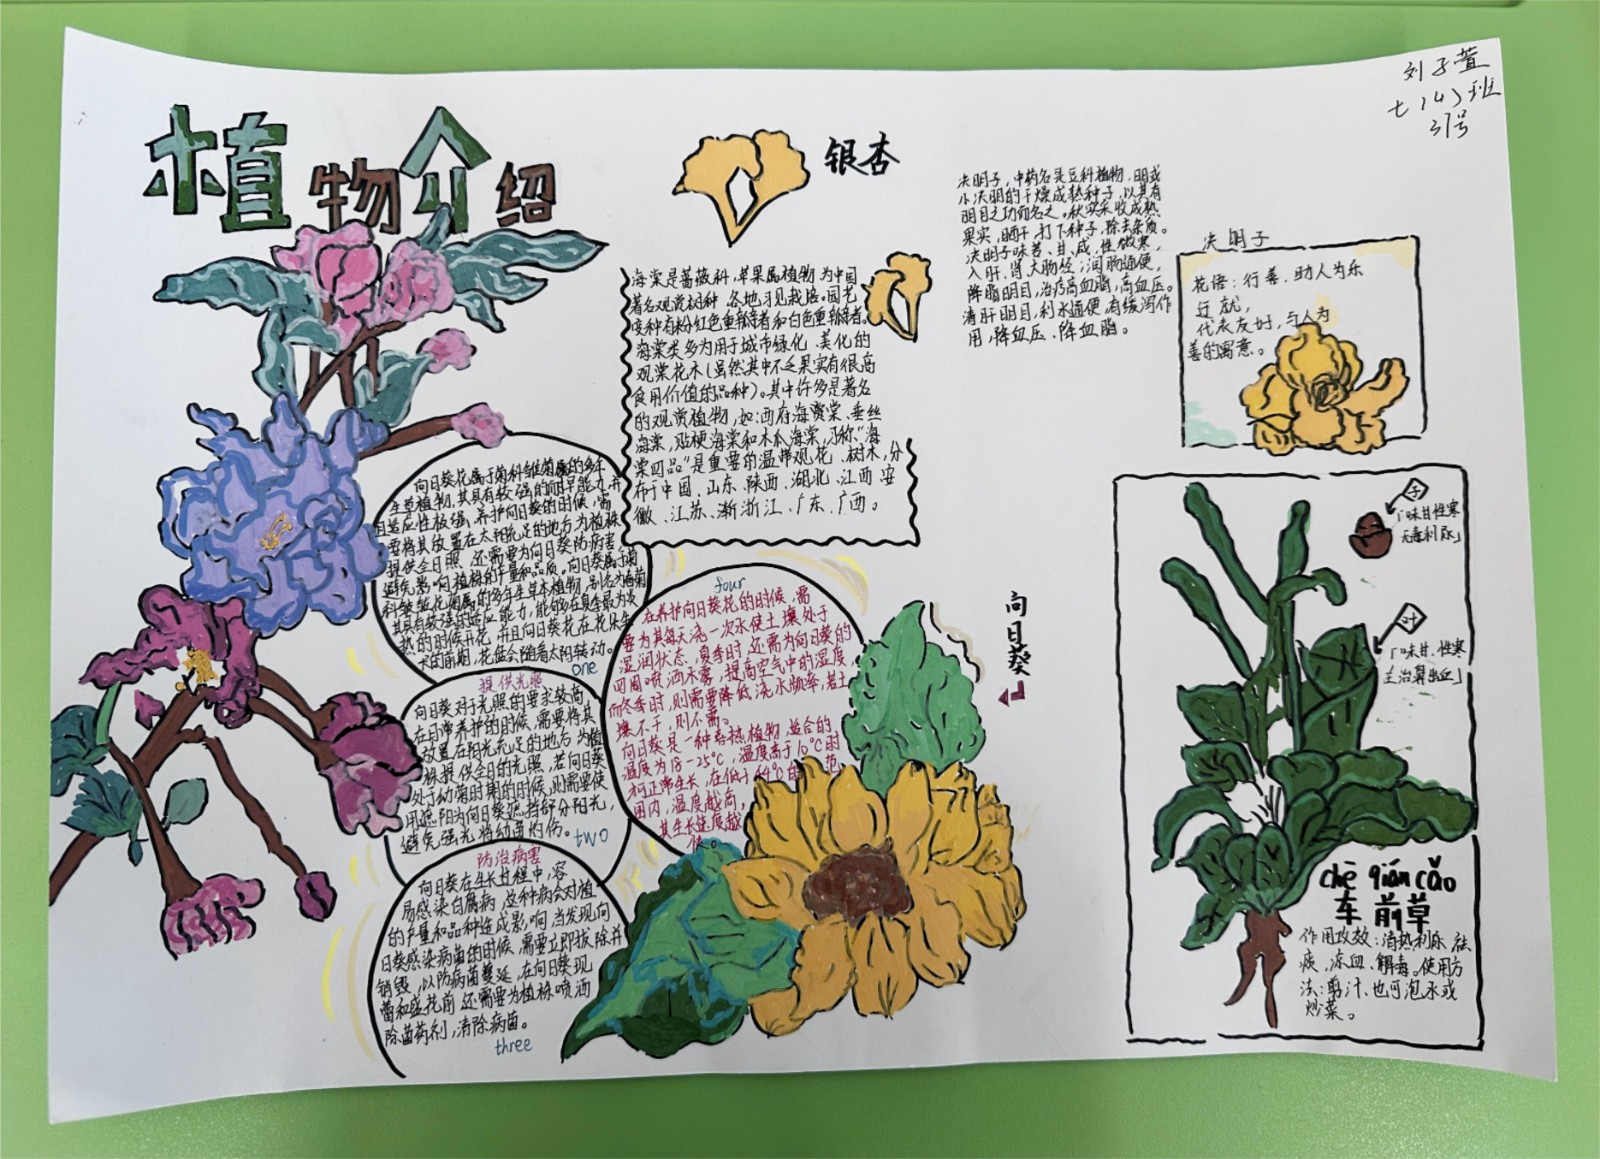 植物介绍
刘子萱
七(4)班
31号
银杏
海棠是蔷薇科,苹果属植物 为中国
著名观赏树种 各地习见栽培。园艺
变种有粉红色重瓣者和白色重瓣者。
海棠类多为用于城市绿化、美化的
观赏花木(虽然其中不乏果实有很高
食用价值的品种)。其中许多是著名
的观赏植物,如:西府海棠、垂丝
海棠,贴梗海棠和木瓜海棠,习称“海
棠四品”是重要的温带观花、树木,分
布于中国、山东、陕西、湖北、江西 安
徽、江苏、浙江、广东、广西。
决明子,中药名是豆科植物,明或
小决明的干燥成熟种子,以其有
明目之功而名之。秋实采收成熟
果实,晒干,打下种子,除去杂质。
决明子味苦、甘、咸,性微寒,
入肝,肾 大肠经;润肠通便,
降脂明目,治疗高血脂,高血压。
清肝明目,利水通便,有缓泻作
用,降血压、降血脂。
决明子
花语:行善、助人为乐
代表友好,与人为
善的寓意。
向日葵花属于菊科雏菊属的多年
生草植物,其具有较强的耐旱能力,并
且适应性极强,养护向日葵的时候,需
要将其放置在太阳充足的地方 为植株
提供全日照,还需要为向日葵防病害
避免影响植株的产量和品质。向日葵属于菊
热的时候开花,并且向日葵花在花朵生
长的前期,花盘会随着太阳转动。
one
提供光照
向日葵对于光照的要求较高,
在日常养护的时候,需要将其
放置在阳光充足的地方 为植
株提供全日的光照,若向日葵
处于幼苗时期的时候,则需要使
用遮阳为向日葵遮挡部分阳光,
避免强光将幼苗灼伤。
two
防治病害
向日葵在生长过程中,容
易感染白腐病,这种病会对植
的产量和品种造成影响,当发现向
日葵感染病菌的时候,需要立即拔除并
销毁,以防病菌蔓延,在向日葵现
蕾和盛花前 还需要为植株喷洒
除菌药剂,清除病菌。
three
four
在养护向日葵花的时候,需
要为其每天浇一次水使土壤处于
湿润状态,夏季时,还需为向日葵的
四周喷洒水雾,提高空气中的湿度,
而冬季时,则需要降低浇水频率,若土
壤不干,则不需。
向日葵是一种喜热植物,适合的
温度为18-25℃,温度高于10℃时
可正常生长,在低于 44℃的 范
围内,温度越高,
其生长速度越
快。
向日葵
子
「味甘性寒
无毒利尿」
叶
「味甘、性寒
主治鼻出血」
chē qián cǎo
车前草
作用功效:清热利尿 祛
痰,凉血、解毒。使用方
法:剪汁、也可泡水或
炒菜。